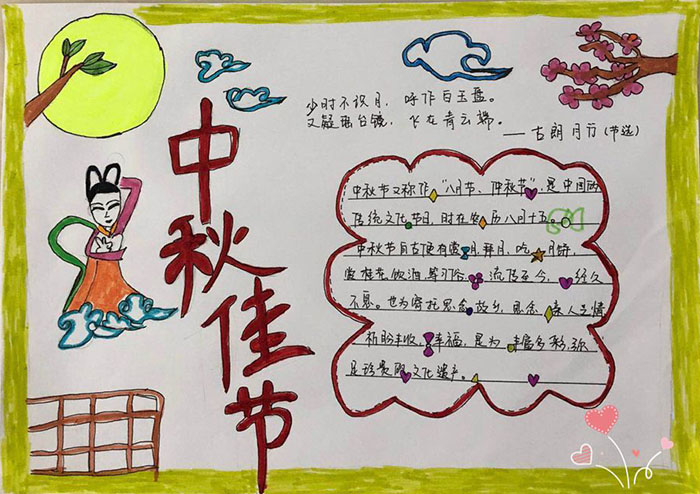 中秋佳节
少时不识月，呼作白玉盘。
又疑瑶台镜，飞在青云端。
——古朗月行（节选）
中秋节又称作“八月节、仲秋节”，是中国
传统文化节日，时在农历八月十五。
中秋节自古便有赏月、拜月、吃月饼，
赏桂花、饮酒等习俗，流传至今，经久
不息。也为寄托思念故乡，思念亲人之情
祈盼丰收、幸福，是为丰富多彩，弥
足珍贵 文化遗产。